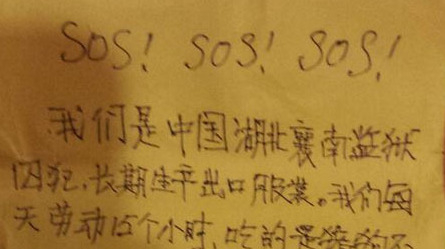 SOS! SOS! SOS!
我们是中国湖北襄南监狱
囚犯，长期生产出口服装。我们每
天劳动15个小时，吃的是